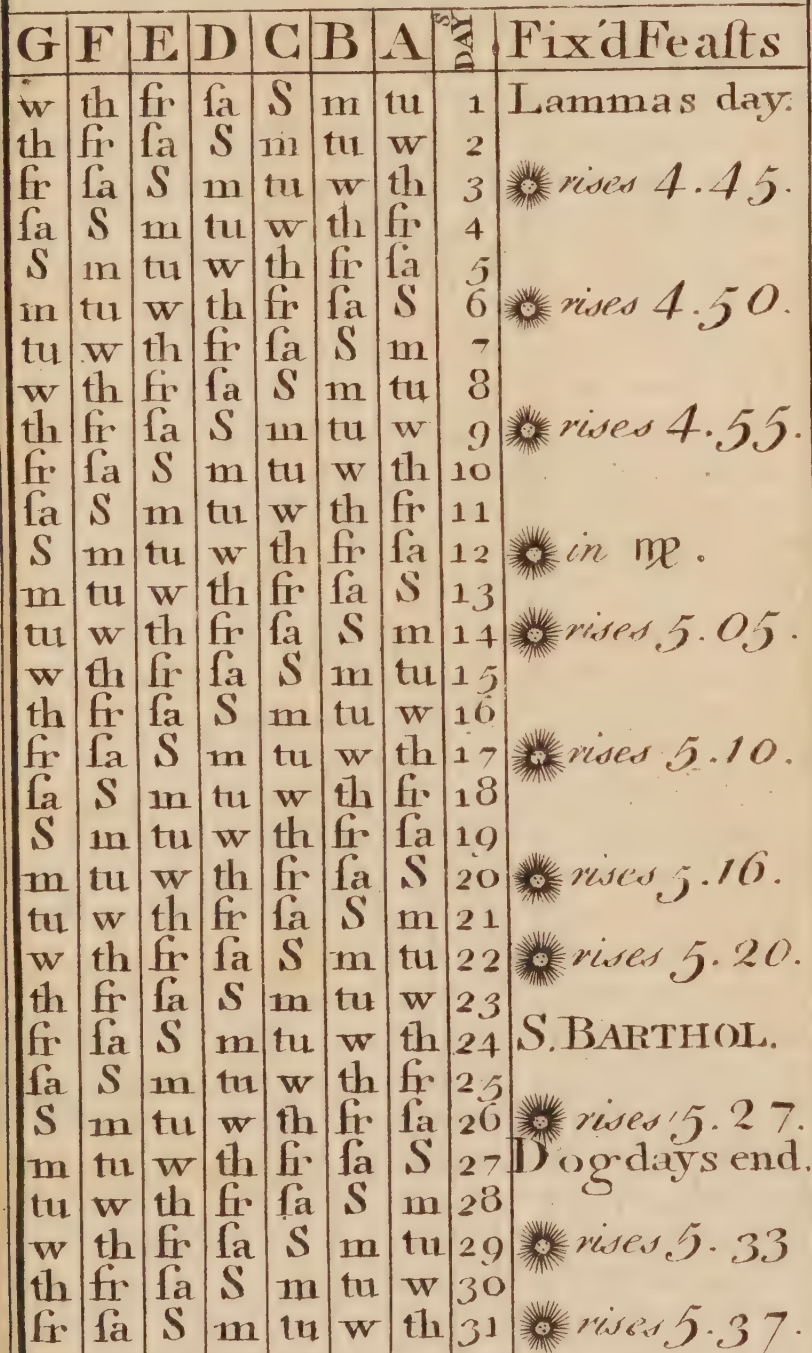 G F E D C B A DAYS Fix'd Feaſts
w th fr ſa S m tu 1 Lammas day.
th fr ſa S m tu w 2
fr ſa S m tu w th 3 rises 4.45.
ſa S m tu w th fr 4
S m tu w th fr ſa 5
m tu w th fr ſa S 6 rises 4.50.
tu w th fr ſa S m 7
w th fr ſa S m tu 8
th fr ſa S m tu w 9 rises 4.55.
fr ſa S m tu w th 10
ſa S m tu w th fr 11
S m tu w th fr ſa 12 in ♍.
m tu w th fr ſa S 13
tu w th fr ſa S m 14 rises 5.05.
w th fr ſa S m tu 15
th fr ſa S m tu w 16
fr ſa S m tu w th 17 rises 5.10.
ſa S m tu w th fr 18
S m tu w th fr ſa 19
m tu w th fr ſa S 20 rises 5.16.
tu w th fr ſa S m 21
w th fr ſa S m tu 22 rises 5.20.
th fr ſa S m tu w 23
fr ſa S m tu w th 24 S. BARTHOL.
ſa S m tu w th fr 25
S m tu w th fr ſa 26 rises 5.27.
m tu w th fr ſa S 27 Dogdays end.
tu w th fr ſa S m 28
w th fr ſa S m tu 29 rises 5.33
th fr ſa S m tu w 30
fr ſa S m tu w th 31 rises 5.37.